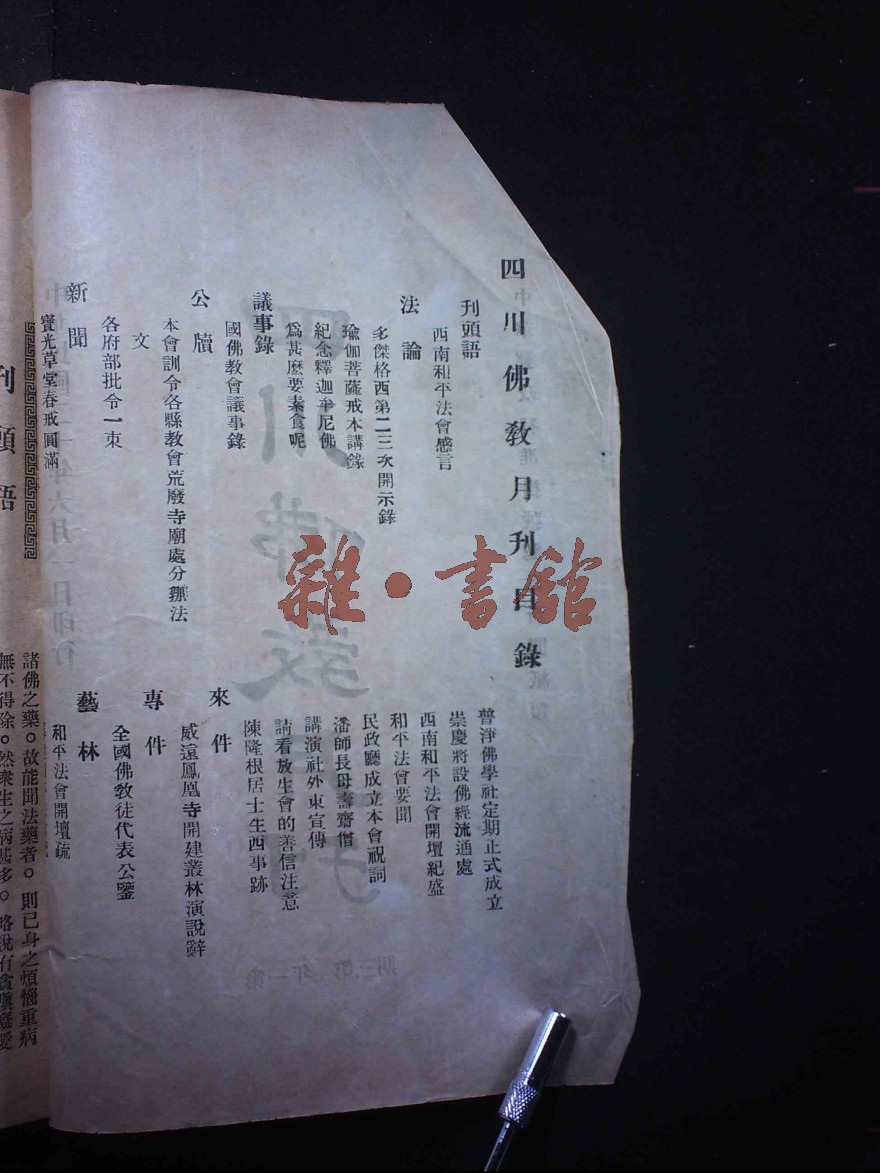 四川佛教月刊目錄
刊頭語
西南和平法會感言
法論
多傑格西第二三次開示錄
瑜伽菩薩戒本講錄
紀念釋迦牟尼佛
爲甚麽要素食呢
議事錄
國佛教會議事錄
公牘
本會訓令各縣教會荒廢寺廟處分辦法
文
各府部批令一束
新聞
寶光草堂春戒圓滿
普淨佛學社定期正式成立
崇慶將設佛經流通處
西南和平法會開壇紀盛
和平法會要聞
民政廳成立本會祝詞
潘師長母壽齋僧
講演社外東宣傳
請看放生會的善信注意
陳隆根居士生西事跡
來件
威遠鳳凰寺開建叢林演說辭
專件
全國佛敎徒代表公鑒
藝林
和平法會開壇疏
雜·書館
刊頭語
諸佛之藥。故能聞法藥者。則已身之煩惱重病
無不得除。然衆生之病甚多。略說有貪瞋癡愛